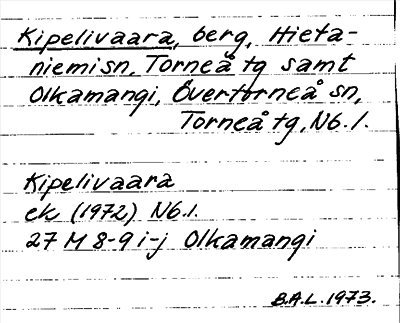 Kipelivaara, berg, Hieta-
niemi sn, Torneå tg samt
Olkamangi, Övertorneå sn,
Torneå tg, Nb. l.
Kipelivaara
ek (1972) Nb. l.
27 M 8-9 i-j Olkamangi
B.A.L. 1973.